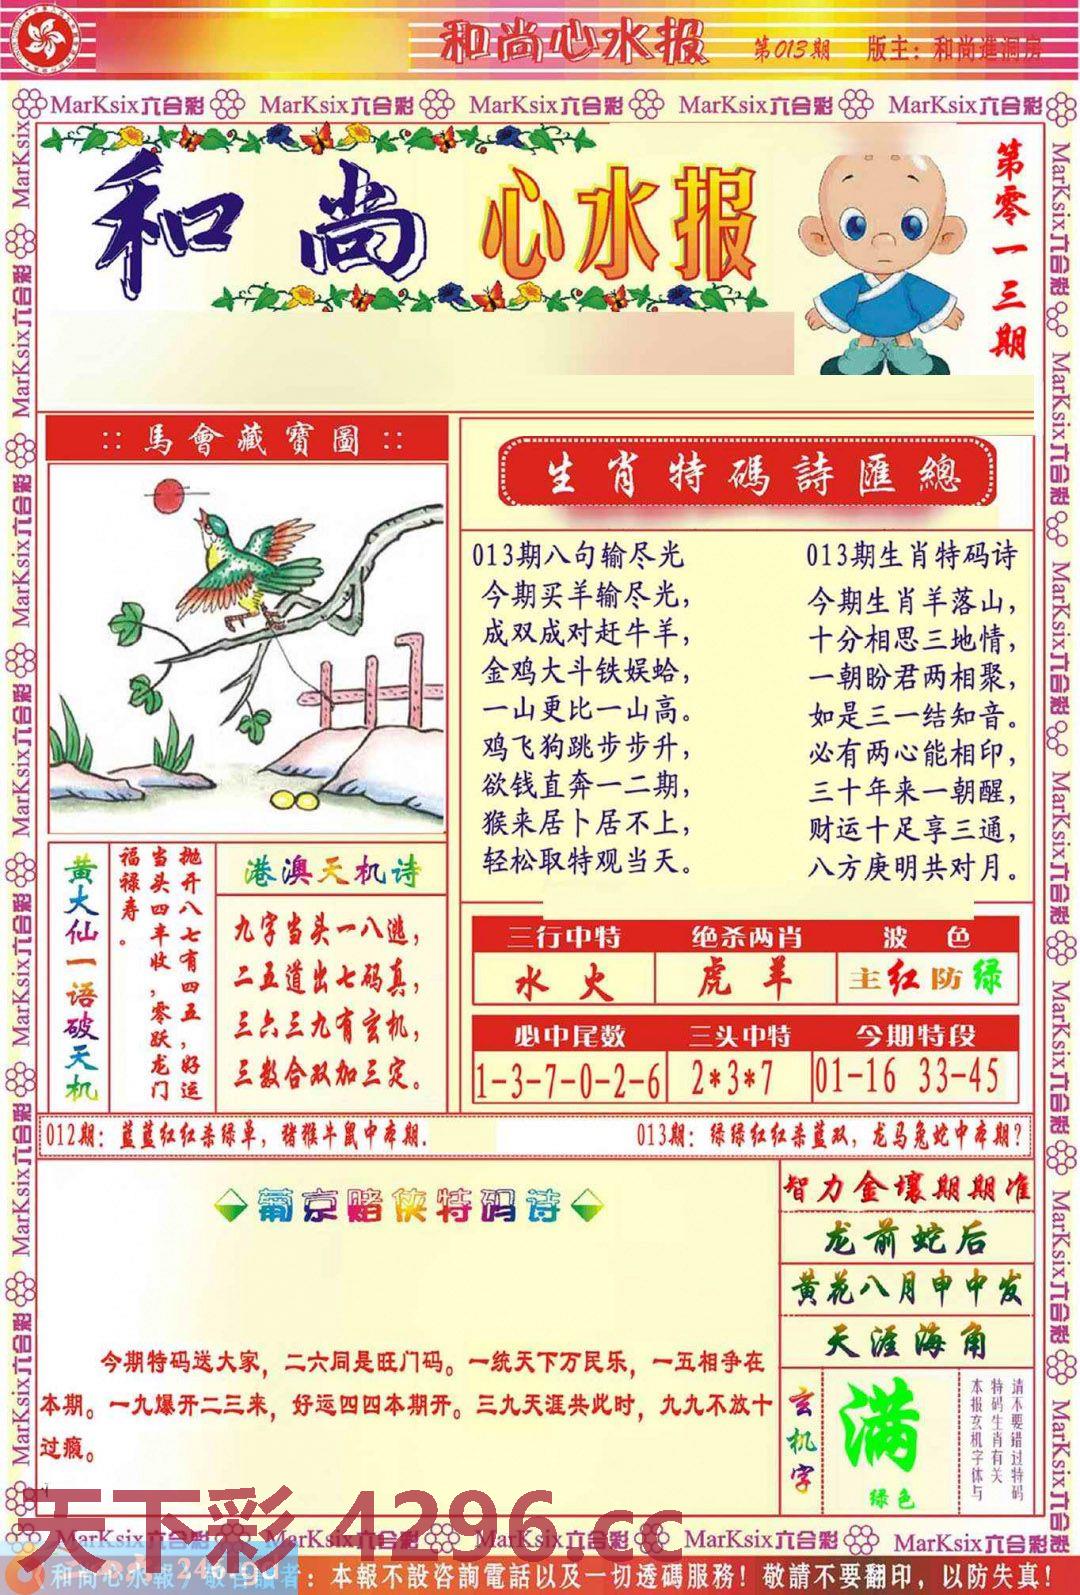 和尚心水报 第013期 版主：和尚進洞房
MarKsix六合彩 MarKsix六合彩 MarKsix六合彩 MarKsix六合彩 MarKsix六合彩
和尚心水报
第零一三期
::馬會藏寶圖::
生肖特碼詩匯總
013期八句输尽光
今期买羊输尽光，
成双成对赶牛羊，
金鸡大斗铁娱蛤，
一山更比一山高。
鸡飞狗跳步步升，
欲钱直奔一二期，
猴来居卜居不上，
轻松取特观当天。
013期生肖特码诗
今期生肖羊落山，
十分相思三地情，
一朝盼君两相聚，
如是三一结知音。
必有两心能相印，
三十年来一朝醒，
财运十足享三通，
八方庚明共对月。
黄大仙一语破天机
抛开八七有四五，好运
当头四丰收，零跃龙门
福禄寿。
港澳天机诗
九字当头一八逃，
二五道出七码真，
三六三九有玄机，
三数合双加三定。
三行中特 绝杀两肖 波色
水火 虎羊 主红防绿
必中尾数 三头中特 今期特段
1-3-7-0-2-6 2*3*7 01-16 33-45
012期：蓝蓝红红杀绿单，猪猴牛鼠中本期.
013期：绿绿红红杀蓝双，龙马兔蛇中本期？
葡京赌侠特码诗
今期特码送大家，二六同是旺门码。一统天下万民乐，一五相争在
本期。一九爆开二三来，好运四四本期开。三九天涯共此时，九九不放十
过瘾。
智力金壤期期准
龙前蛇后
黄花八月申中发
天涯海角
玄机字
满
绿色
请不要错过特码
特码生肖有关
本报玄机字体与
天下彩 4296.cc
MarKsix六合彩 MarKsix六合彩 MarKsix六合彩 MarKsix六合彩 MarKsix六合彩
和尚心水報 敬告讀者：本報不設咨詢電話以及一切透碼服務！敬請不要翻印，以防失真！